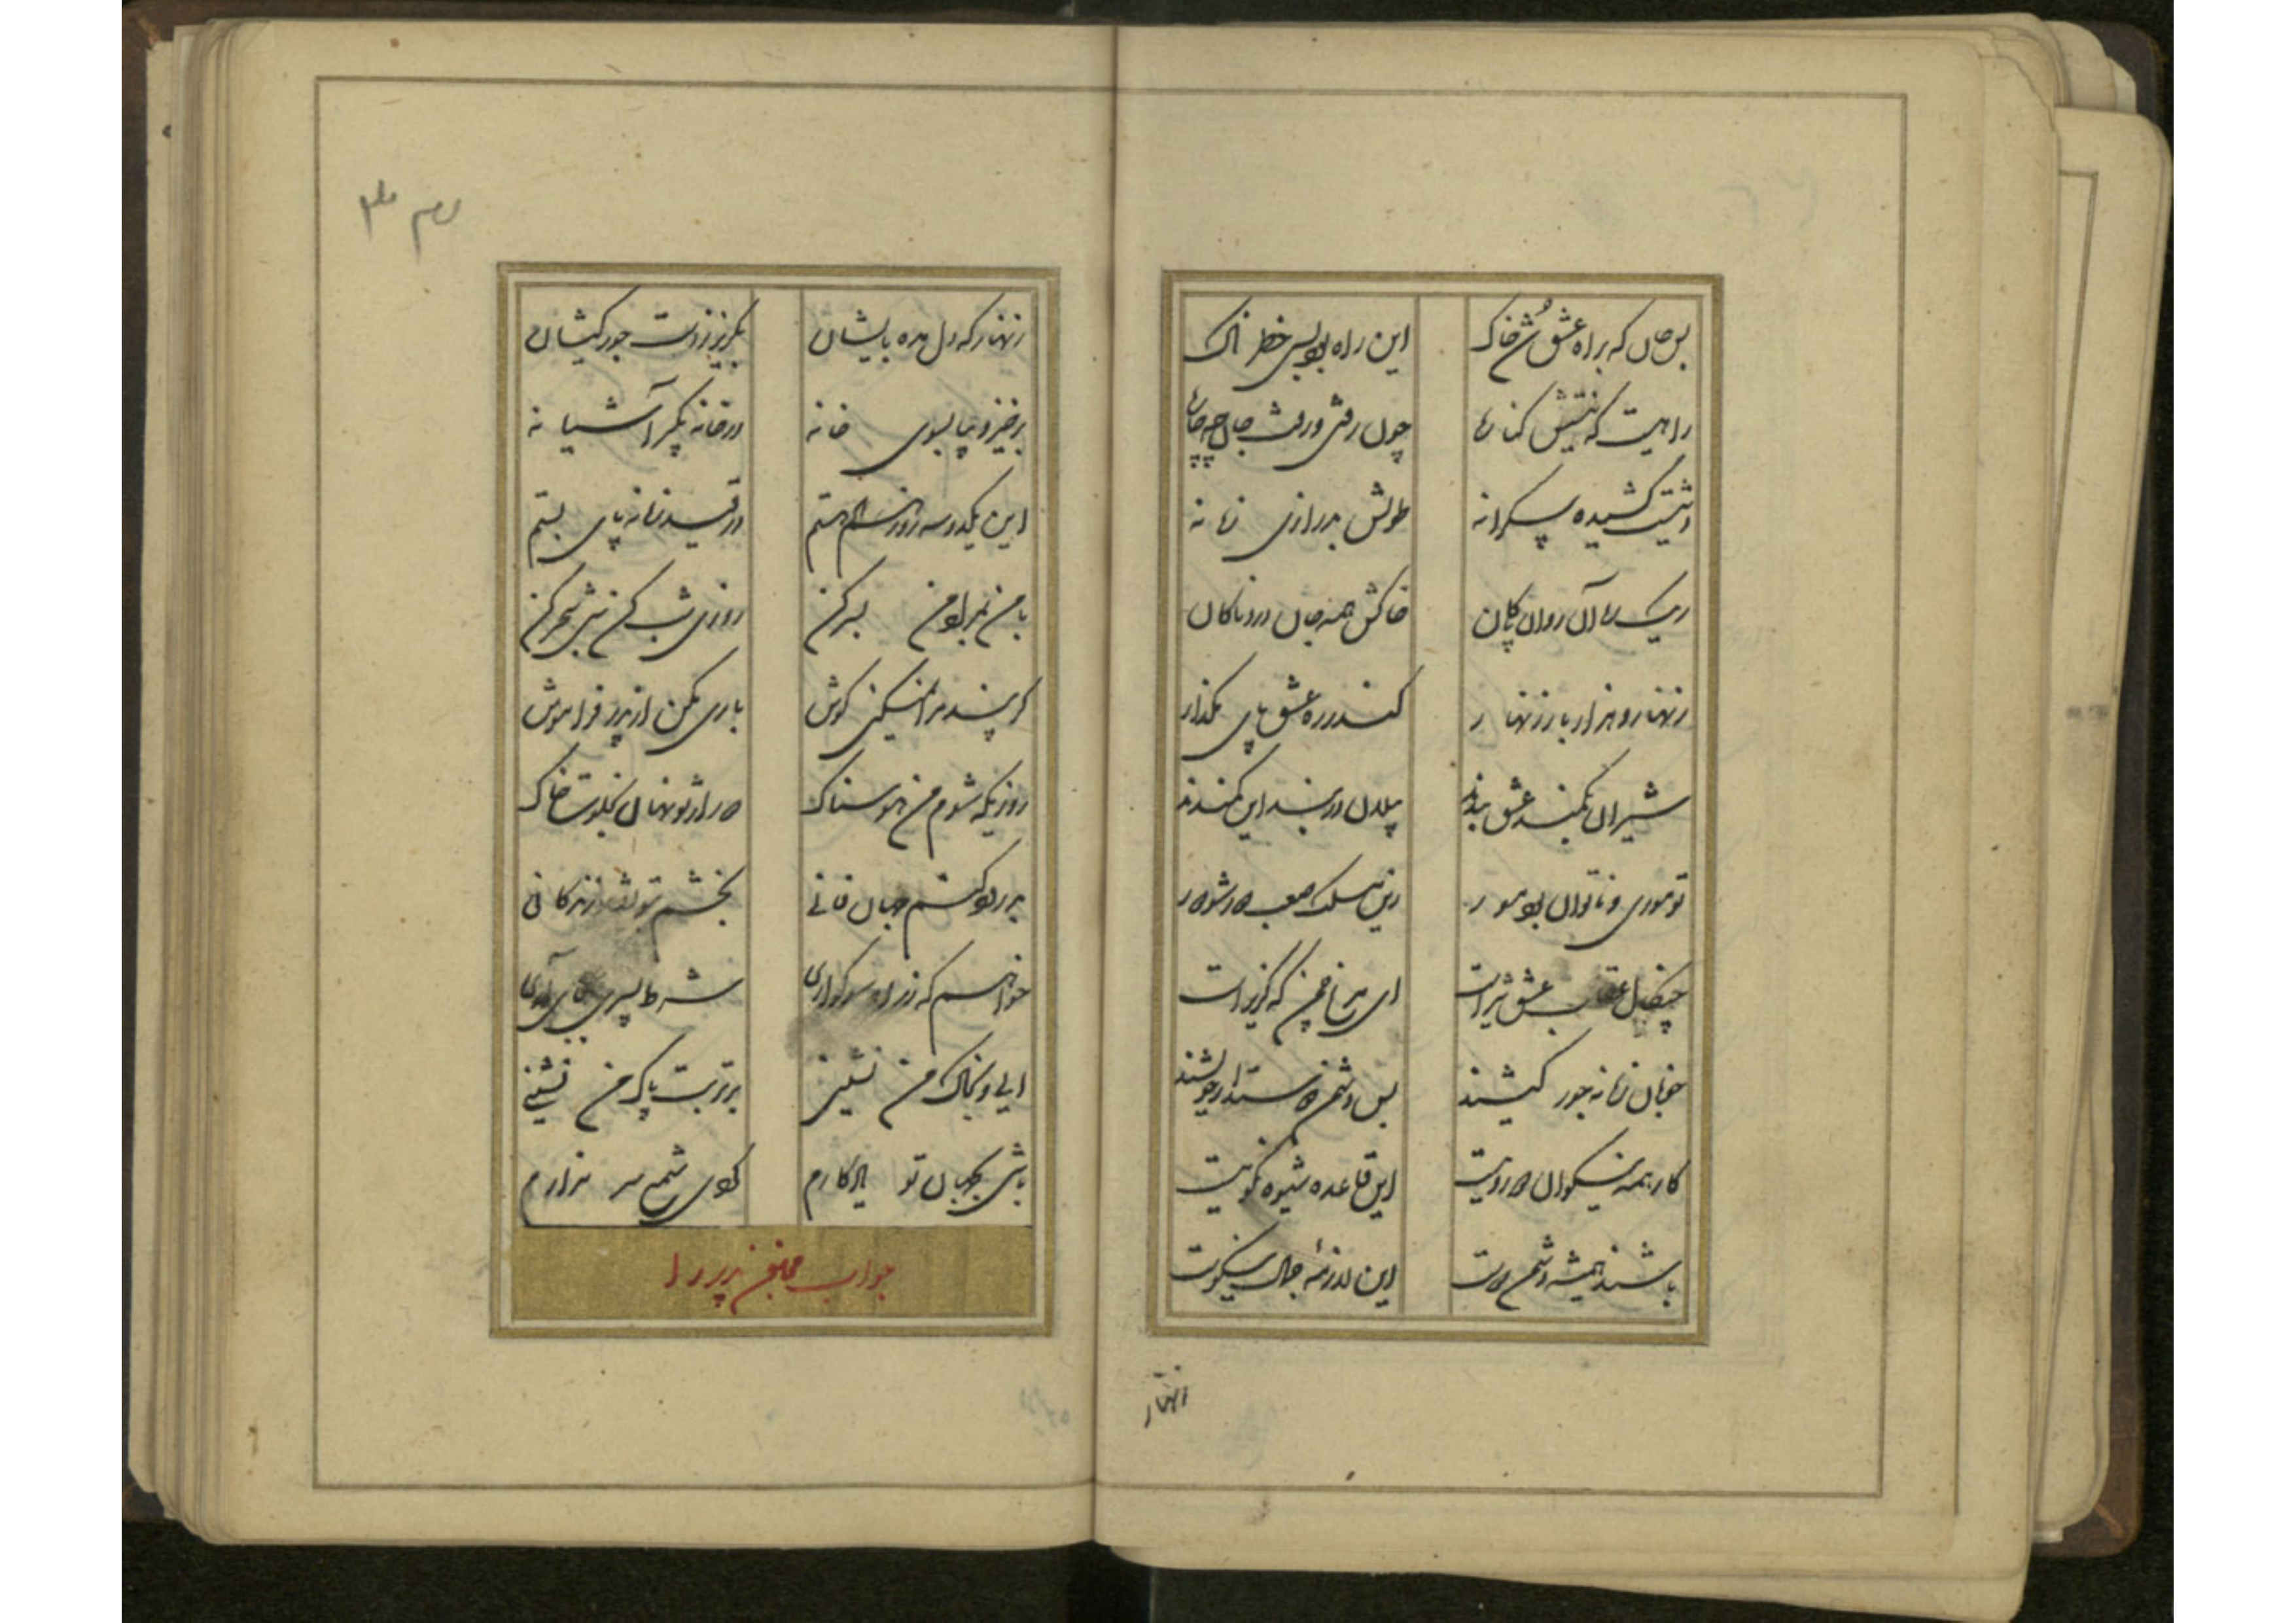 بس جان که براه عشق شد خاک این راه بود بسی خطرناک
راهیست که نیستش کنارها چون رفتی و رفت جان چه جانها
دشتیست کشیده بیکرانه طولش بدرازی زمانه
ریک آن روان پاکان خاکش همه جان دردناکان
زنهار و هزار بار زنهار کندر ره عشق پای مگذار
شیران بکمند عشق بندند پیلان در بند این کمندند
تو موری و ناتوان بود مور زین مسلک صعب دور شو دور
چنکال عقاب عشق تیز است ای مرغ که کریز است
خوبان زمانه جور کیشند بس دشمن دوستدار خویشند
کار همه نیکوان دوروییست این قاعده شیوه نکوییست
باشند همیشه دشمن دوست این لازمه جمال نیکوست
زنهار
زنهار که دل مده بایشان بگریز ز دست جورکیشان
برخیز و بیا بسوی خانه در خانه بگیر آشیانه
این یکدو سه روز که هستم در قید زمانه پای بستم
با من بمراد من بسر کن روزی بشب کن شبی سحر کن
گر پند مرا نمیکنی گوش باری مکن از پدر فراموش
روزیکه شوم من هوسناک دور از تو نهان بخلوت خاک
بدرود کنم جهان فانی بخشم بتو نقد زندگانی
خواهم که ز راه سوکواری شرط پسری بجای آری
آیی و بخاک من نشینی بر تربت پاک من نشینی
باشی بجهان تو یادگارم گوی شمع سر مزارم
جواب مجنون پدر را